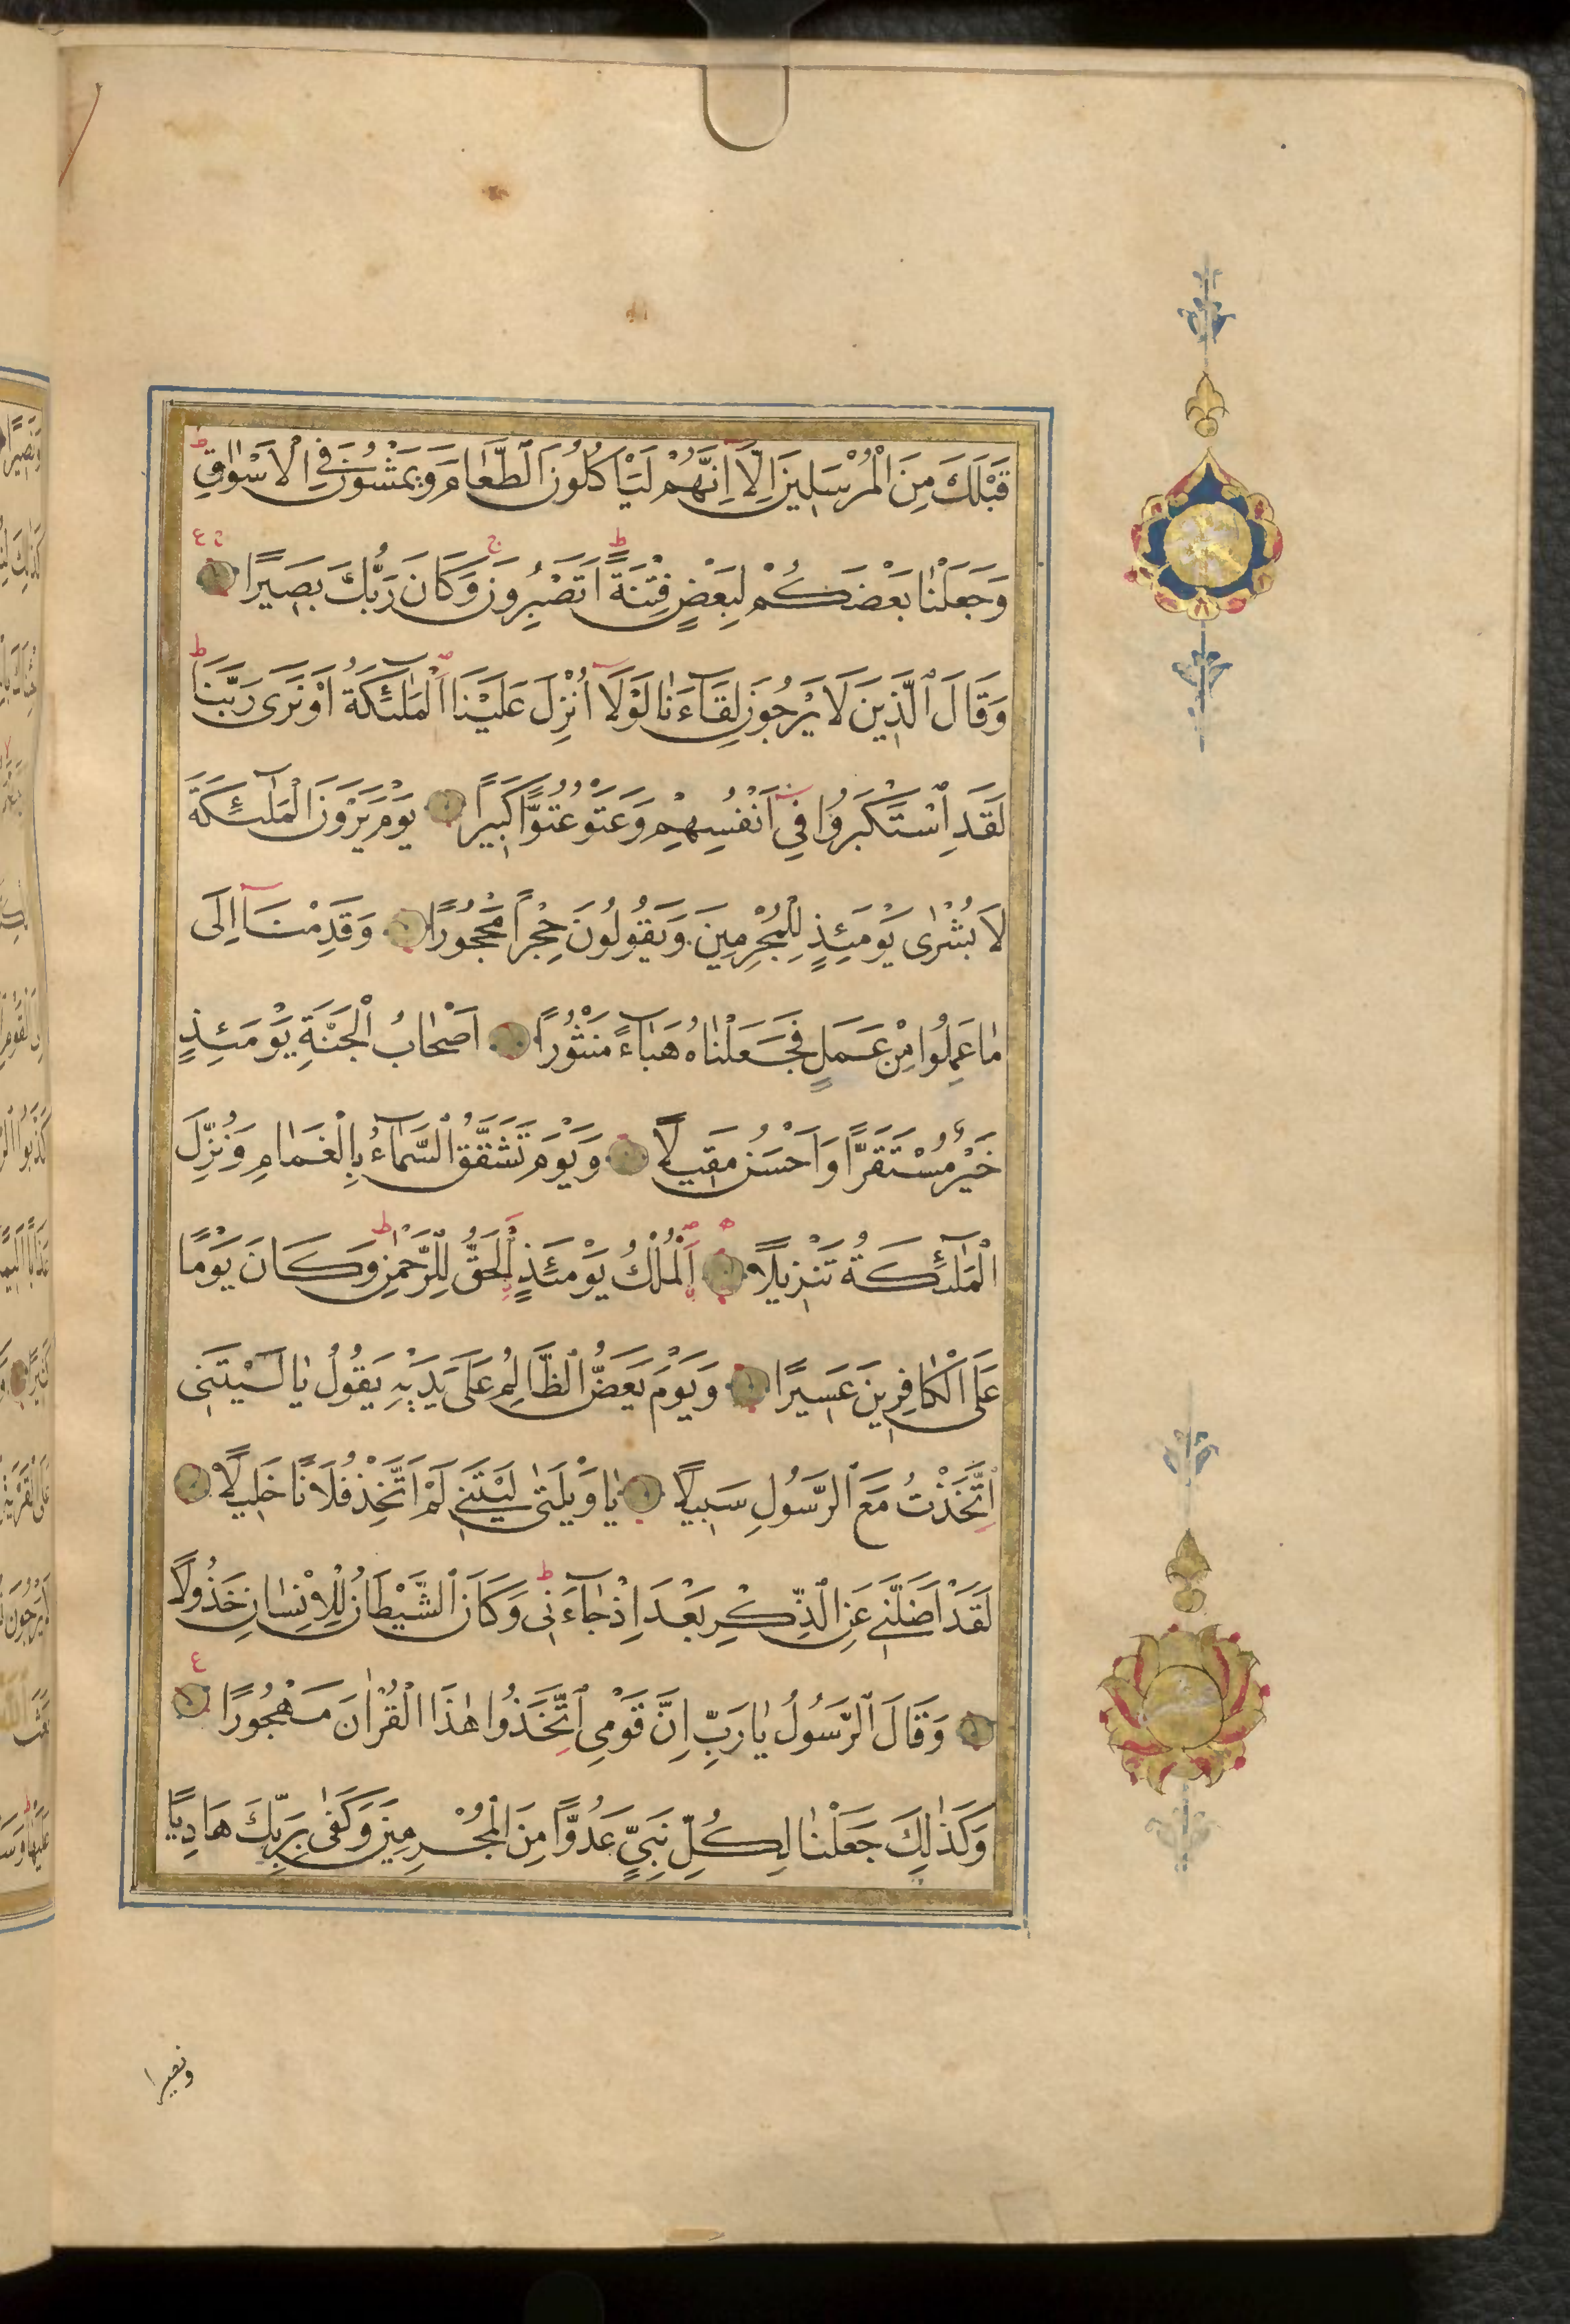 قَبْلَكَ مِنَ الْمُرْسَلِينَ اِلَّآ اِنَّهُمْ لَيَاْكُلُونَ الطَّعَامَ وَيَمْشُونَ فِي الْاَسْوَاقِ ط
وَجَعَلْنَا بَعْضَكُمْ لِبَعْضٍ فِتْنَةً ط اَتَصْبِرُونَ ج وَكَانَ رَبُّكَ بَصِيرًا ع
وَقَالَ الَّذِينَ لَا يَرْجُونَ لِقَآءَنَا لَوْلَآ اُنْزِلَ عَلَيْنَا الْمَلٰٓئِكَةُ اَوْ نَرٰى رَبَّنَا ط
لَقَدِ اسْتَكْبَرُوا فِٓي اَنْفُسِهِمْ وَعَتَوْ عُتُوًّا كَبِيرًا يَوْمَ يَرَوْنَ الْمَلٰٓئِكَةَ
لَا بُشْرٰى يَوْمَئِذٍ لِلْمُجْرِمِينَ وَيَقُولُونَ حِجْرًا مَحْجُورًا وَقَدِمْنَآ اِلَى
مَا عَمِلُوا مِنْ عَمَلٍ فَجَعَلْنَاهُ هَبَآءً مَنْثُورًا اَصْحَابُ الْجَنَّةِ يَوْمَئِذٍ
خَيْرٌ مُسْتَقَرًّا وَاَحْسَنُ مَقِيلًا وَيَوْمَ تَشَقَّقُ السَّمَآءُ بِالْغَمَامِ وَنُزِّلَ
الْمَلٰٓئِكَةُ تَنْزِيلًا اَلْمُلْكُ يَوْمَئِذٍ الْحَقُّ لِلرَّحْمٰنِ ط وَكَانَ يَوْمًا
عَلَى الْكَافِرِينَ عَسِيرًا وَيَوْمَ يَعَضُّ الظَّالِمُ عَلٰى يَدَيْهِ يَقُولُ يَا لَيْتَنِي
اتَّخَذْتُ مَعَ الرَّسُولِ سَبِيلًا يَا وَيْلَتٰى لَيْتَنِي لَمْ اَتَّخِذْ فُلَانًا خَلِيلًا
لَقَدْ اَضَلَّنِي عَنِ الذِّكْرِ بَعْدَ اِذْ جَآءَنِي ط وَكَانَ الشَّيْطَانُ لِلْاِنْسَانِ خَذُولًا
وَقَالَ الرَّسُولُ يَا رَبِّ اِنَّ قَوْمِي اتَّخَذُوا هٰذَا الْقُرْاٰنَ مَهْجُورًا ع
وَكَذٰلِكَ جَعَلْنَا لِكُلِّ نَبِيٍّ عَدُوًّا مِنَ الْمُجْرِمِينَ وَكَفٰى بِرَبِّكَ هَادِيًا
ونصيرا